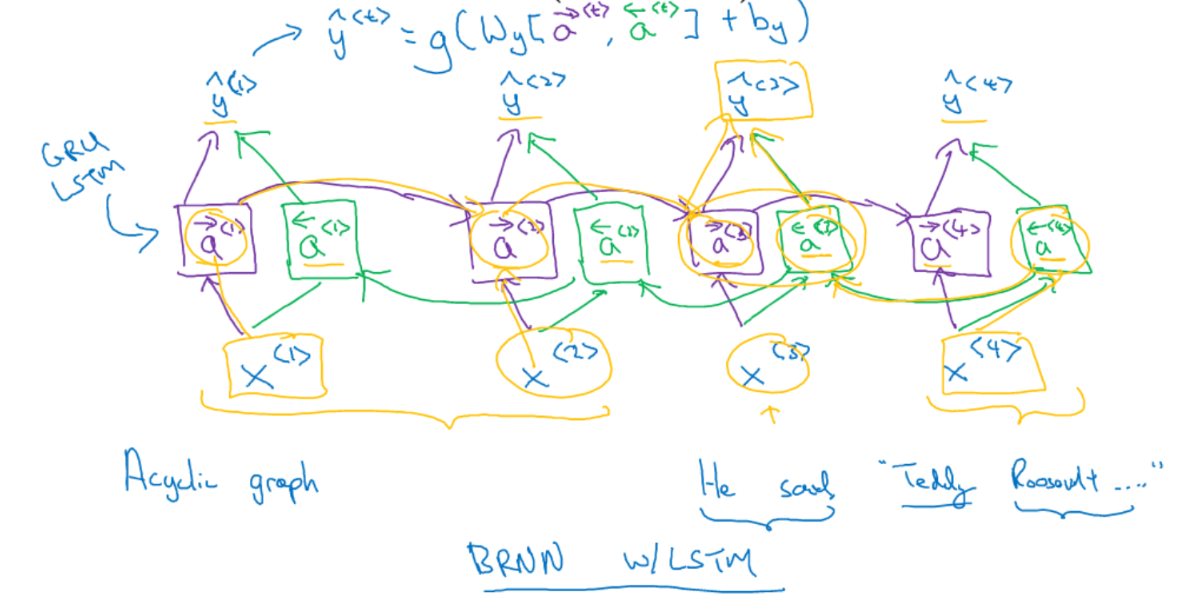 ŷ<t> = g(Wy[a→<t>, a←<t>] + by)
ŷ<1> ŷ<2> ŷ<3> ŷ<4>
GRU
LSTM
a→<1> a←<1> a→<2> a←<2> a→<3> a←<3> a→<4> a←<4>
x<1> x<2> x<3> x<4>
Acyclic graph
He said "Teddy Roosevelt ...."
BRNN w/LSTM